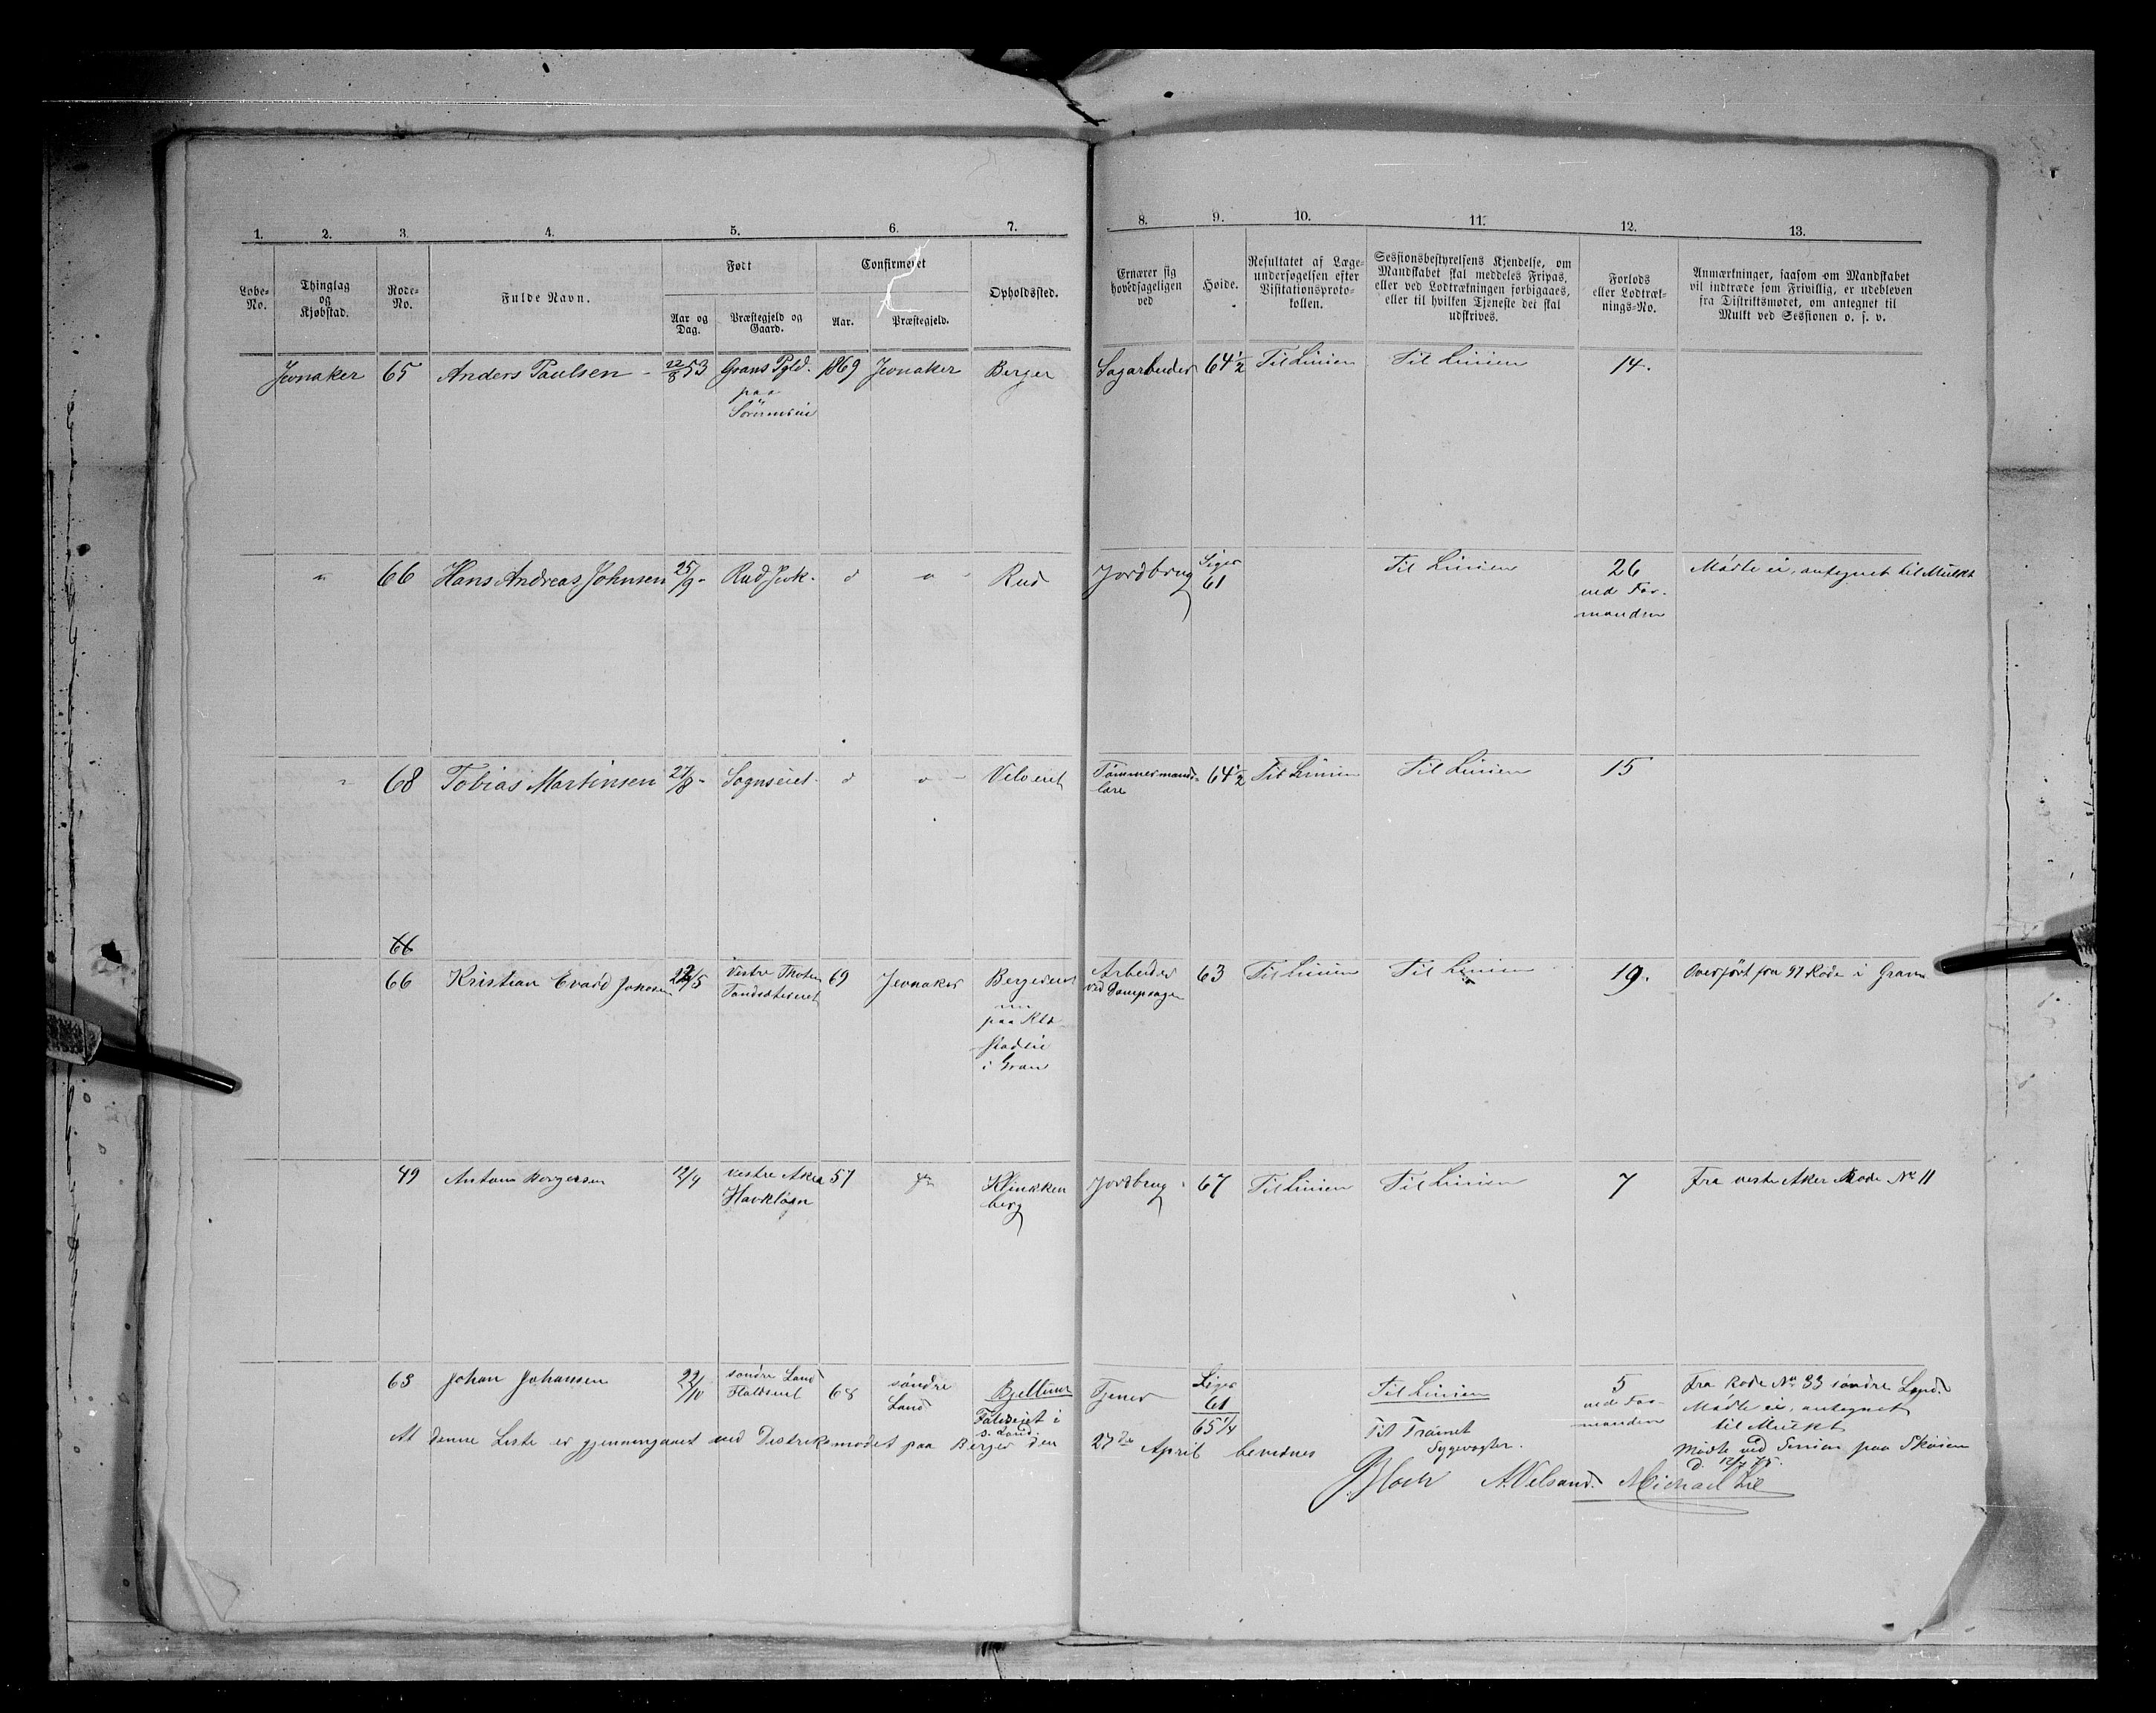 1. 2. 3. 4. 5. 6. 7. 8. 9. 10. 11. 12. 13.
Løbe-No.
Thinglag og Kjøbstad.
Rode-No.
Fulde Navn.
Født
Aar og Dag.
Præstegjeld og Gaard.
Confirmeret
Aar.
Præstegjeld.
Opholdssted.
Ernærer sig hovedsageligen ved
Høide.
Resultatet af Læge-undersøgelsen efter Visitationsproto-kollen.
Sessionsbestyrelsens Kjendelse, om Mandskabet skal meddeles Fripas, eller ved Lodtrækningen forbigaaes, eller til hvilken Tjeneste det skal udskrives.
Forlods eller Lodtræk-nings-No.
Anmærkninger, saasom om Mandskabet vil indtræde som Frivillig, er udebleven fra Distriktsmødet, om antegnet til Mulkt ved Sessionen o. s. v.
Jevnaker 65 Anders Paulsen - 22/8 53 Grans Pgld. 1869 Jevnaker Berger Sagarbeider 64 1/2 Til Linien Til Linien 14.
paa
" 66 Hans Andreas Johnsen 25/9 - Rud Jevk. d o - Rud Jordbrug Siger 61 Til Linien 26
ved For-
manden
Mødte ei, antegnet til Mulkt
" 68 Tobias Martinsen 27/8 - Sognseiet d o - Velo eiet Tømmermands- 64 1/2 Til Linien Til Linien 15
lære
66
66 Kristian Evard 22/5 Vestre Thoten 69 Jevnaker Bergereiet Arbeider 63 Til Linien Til Linien 19. Overført fra 97 Rode i Gran
ved Dampsagen
nu
paa
i Gran
49 Anton Borgersen 12/4 Vestre Aker 57 Klinkken Jordbrug 67 Til Linien Til Linien 7 Fra vestre Aker Rode No 11
berg
63 Johan Johansen 22/10 søndre Land 68 søndre Bjellum Tjener Siger Til Linien 5 Fra Rode No 33 søndre Land.
Land 61 ved For- Mødte ei, antegnet
i 65 1/4 Til Trainet manden til Mulkt
S. Land. Sygevogter. Mødte ved Session paa
d. 12/7 75.
At denne Liste er gjennemgaaet ved Distriksmødet paa Berger den 27de April bevidnes
Bloch A. Velsand. Michael Lie